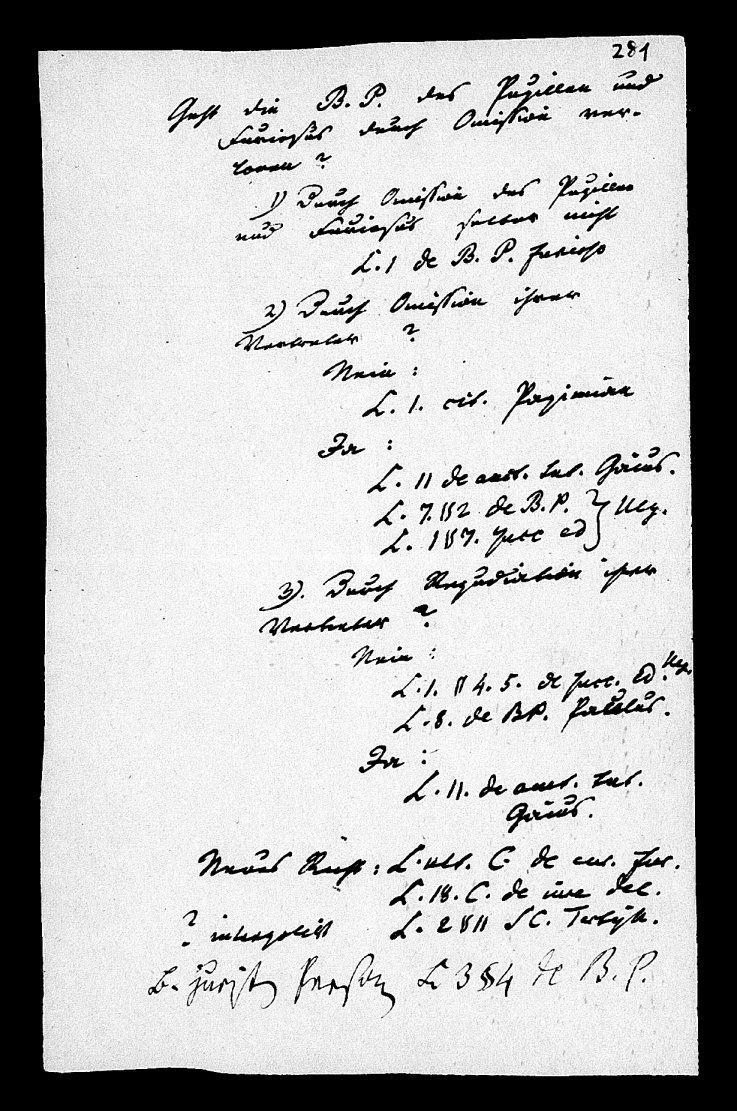 281
Geht die B. P. des Pupillen und
Furiosus durch Omission ver-
loren ?
1) Durch Omission des Pupillen
und Furiosus selber nicht
L. 1 de B. P. furioso
2) Durch Omission ihrer
Vertreter ?
Nein :
L. 1. cit. Papinian
Ja :
L. 11 de auct. tut. Gaius.
L. 7. § 2 de B. P. } Ulp.
L. 1 § 7. succ ed
3). Durch Repudiation ihrer
Vertreter ?
Nein :
L. 1. § 4. 5. de succ. ed. Ulp.
L. 8. de BP. Paulus.
Ja :
L. 11. de auct. tut.
Gaius.
Neues Recht : L. ult. C. de cur. fur.
L. 18. C. de iure del.
? interpolirt L. 2 § 11 SC. Tertyll.
b. jurist Person L 3 § 4 de B. P.